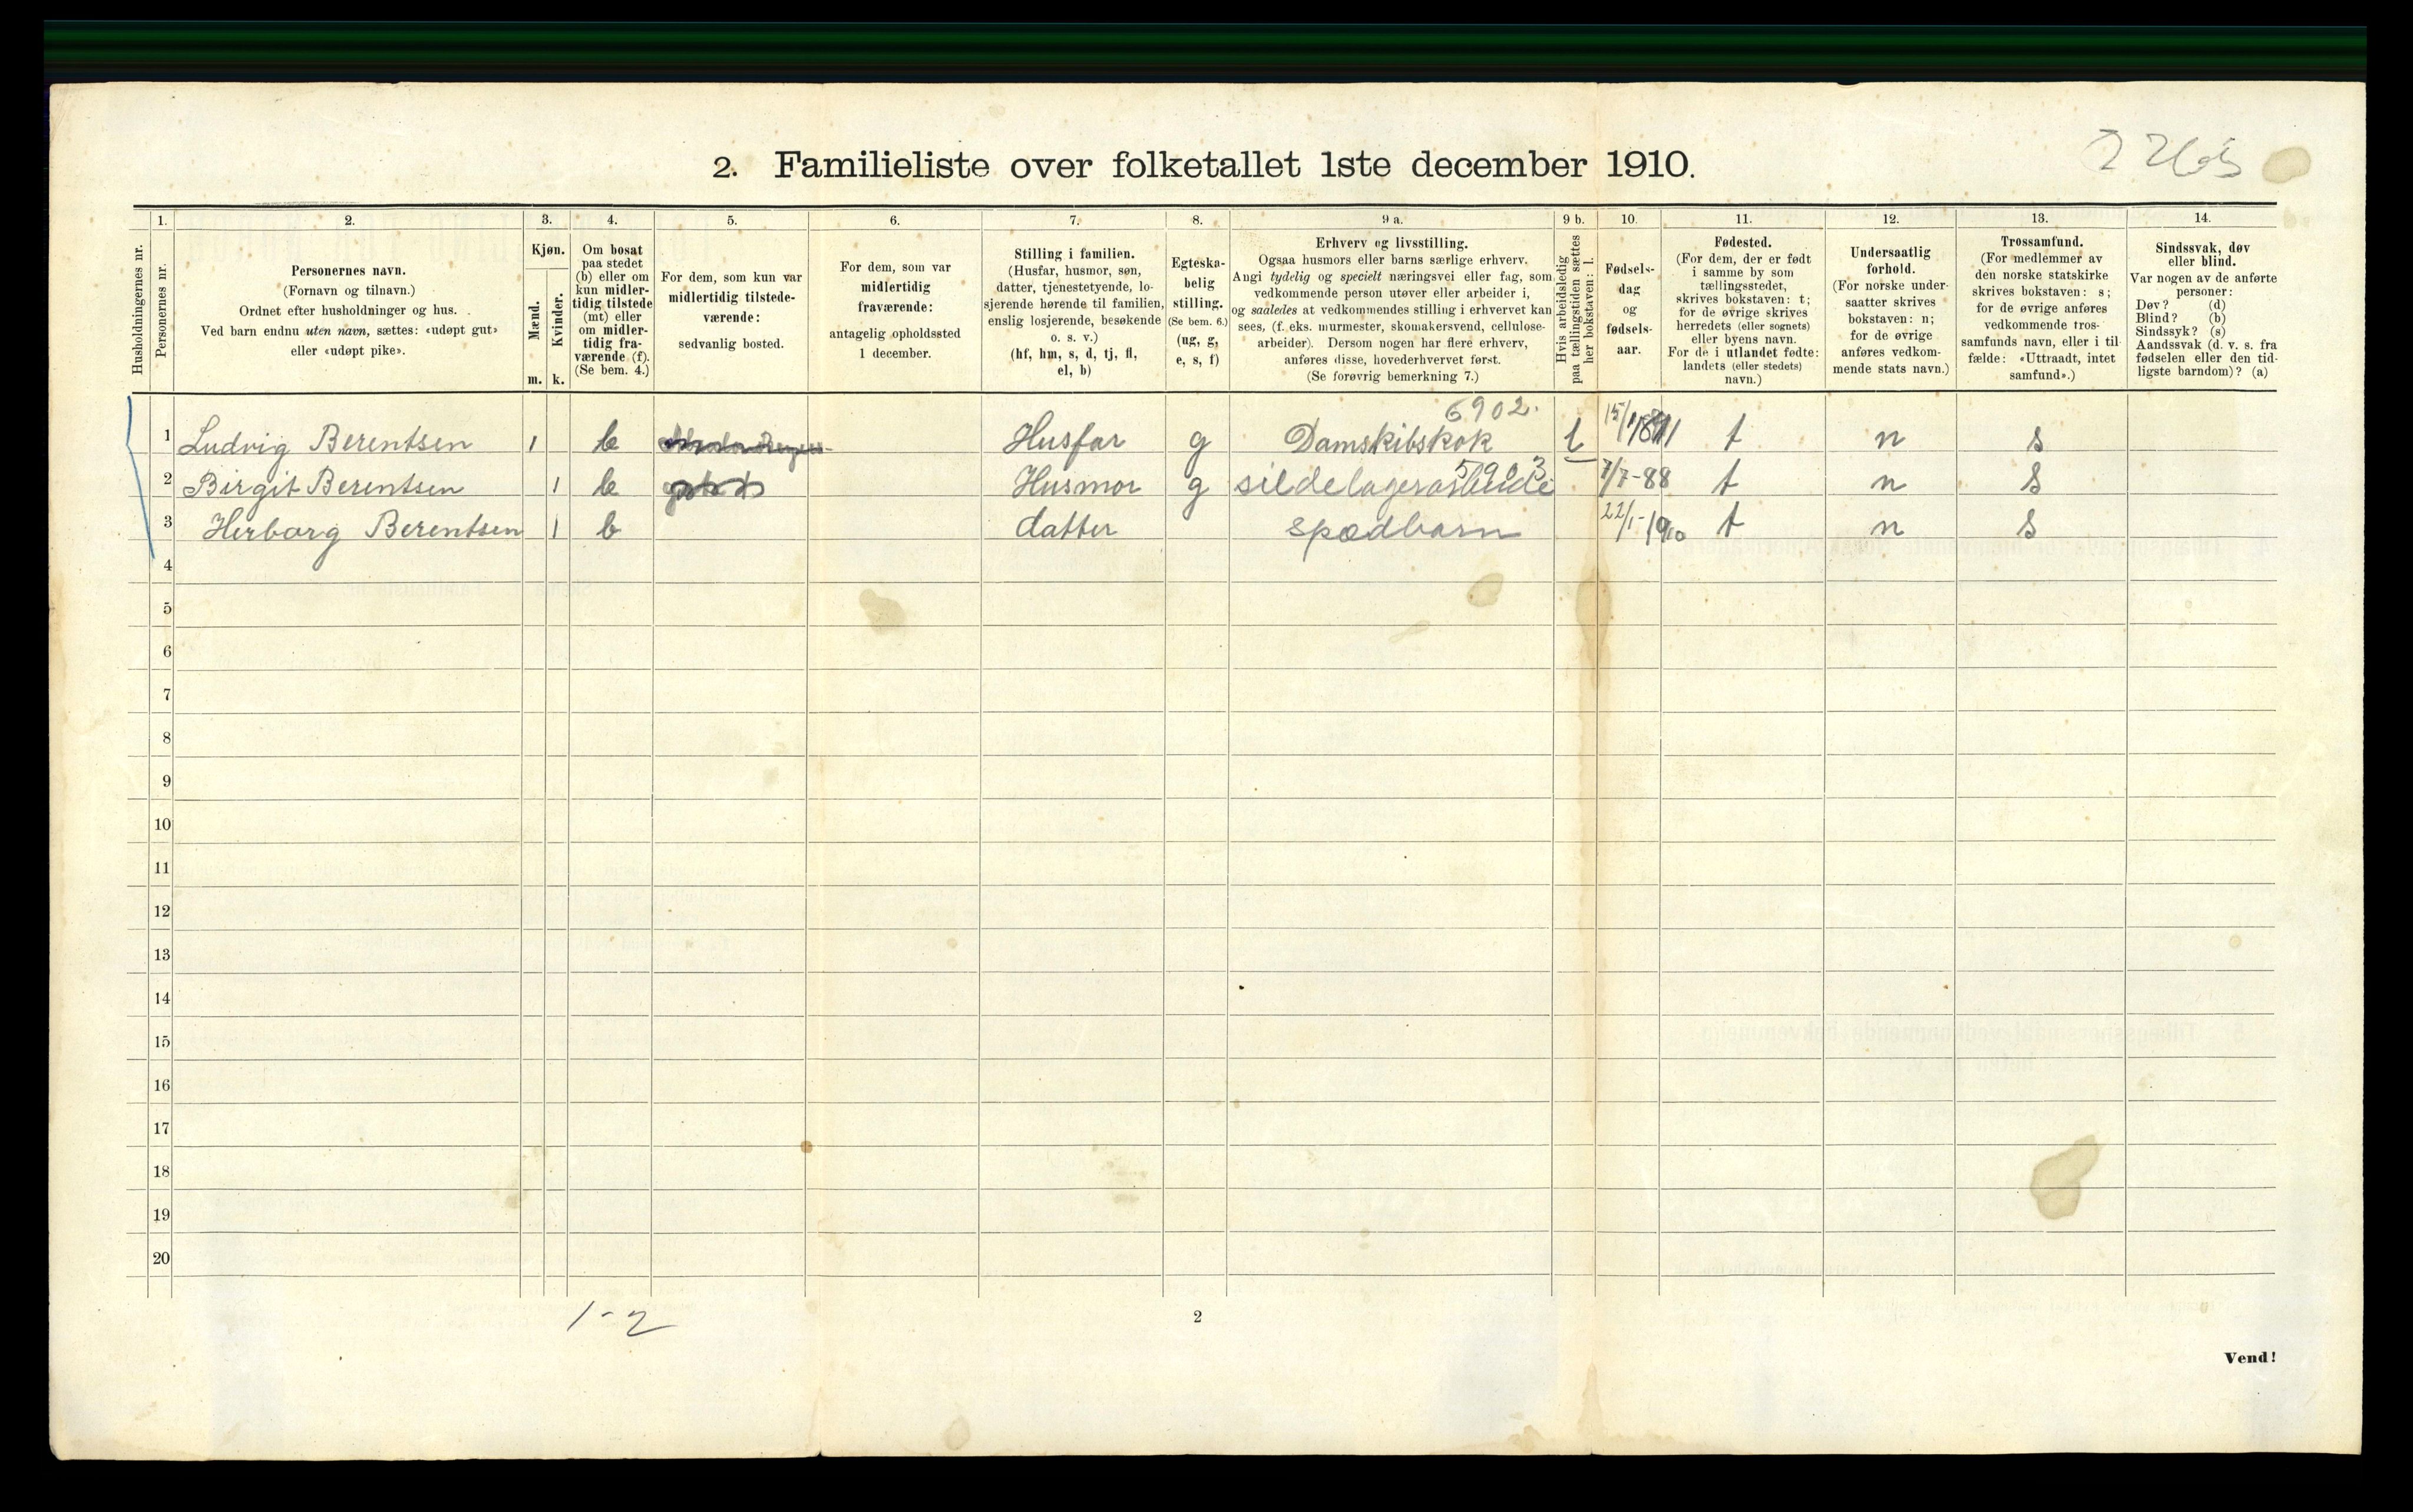 2. Familieliste over folketallet 1ste december 1910.
1. 2. 3. 4. 5. 6. 7. 8. 9 a. 9 b. 10. 11. 12. 13. 14.
Husholdningernes nr.
Personernes nr.
Personernes navn.
(Fornavn og tilnavn.)
Ordnet efter husholdninger og hus.
Ved barn endnu uten navn, sættes: «udøpt gut»
eller «udøpt pike».
Kjøn.
Mænd.
Kvinder.
m. k.
Om bosat
paa stedet
(b) eller om
kun midler-
tidig tilstede
(mt) eller
om midler-
tidig fra-
værende (f).
(Se bem. 4.)
For dem, som kun var
midlertidig tilstede-
værende:
sedvanlig bosted.
For dem, som var
midlertidig
fraværende:
antagelig opholdssted
1 december.
Stilling i familien.
(Husfar, husmor, søn,
datter, tjenestetyende, lo-
sjerende hørende til familien,
enslig losjerende, besøkende
o. s. v.)
(hf, hm, s, d, tj, fl,
el, b)
Egteska-
belig
stilling.
(Se bem. 6.)
(ug, g,
e, s, f)
Erhverv og livsstilling.
Ogsaa husmors eller barns særlige erhverv.
Angi tydelig og specielt næringsvei eller fag, som
vedkommende person utøver eller arbeider i,
og saaledes at vedkommendes stilling i erhvervet kan
sees, (f. eks. murmester, skomakersvend, cellulose-
arbeider). Dersom nogen har flere erhverv,
anføres disse, hovederhvervet først.
(Se forøvrig bemerkning 7.)
Hvis arbeidsledig
paa tællingstiden sættes
her bokstaven: l.
Fødsels-
dag
og
fødsels-
aar.
Fødested.
(For dem, der er født
i samme by som
tællingsstedet,
skrives bokstaven: t;
for de øvrige skrives
herredets (eller sognets)
eller byens navn.
For de i utlandet fødte:
landets (eller stedets)
navn.)
Undersaatlig
forhold.
(For norske under-
saatter skrives
bokstaven: n;
for de øvrige
anføres vedkom-
mende stats navn.)
Trossamfund.
(For medlemmer av
den norske statskirke
skrives bokstaven: s;
for de øvrige anføres
vedkommende tros-
samfunds navn, eller i til-
fælde: «Uttraadt, intet
samfund».)
Sindssvak, døv
eller blind.
Var nogen av de anførte
personer:
Døv? (d)
Blind? (b)
Sindssyk? (s)
Aandssvak (d. v. s. fra
fødselen eller den tid-
ligste barndom)? (a)
6902.
1 Ludvig Berentsen 1 b Husfar g Damskibskok l t n s
5903
2 Birgit Berentsen 1 b Husmor g sildelagerarbeide 7/7-88 t n s
3 Herborg Berentsen 1 b datter spædbarn 22/1-1910 t n s
4
5
6
7
8
9
10
11
12
13
14
15
16
17
18
19
20
1-2
2
Vend!